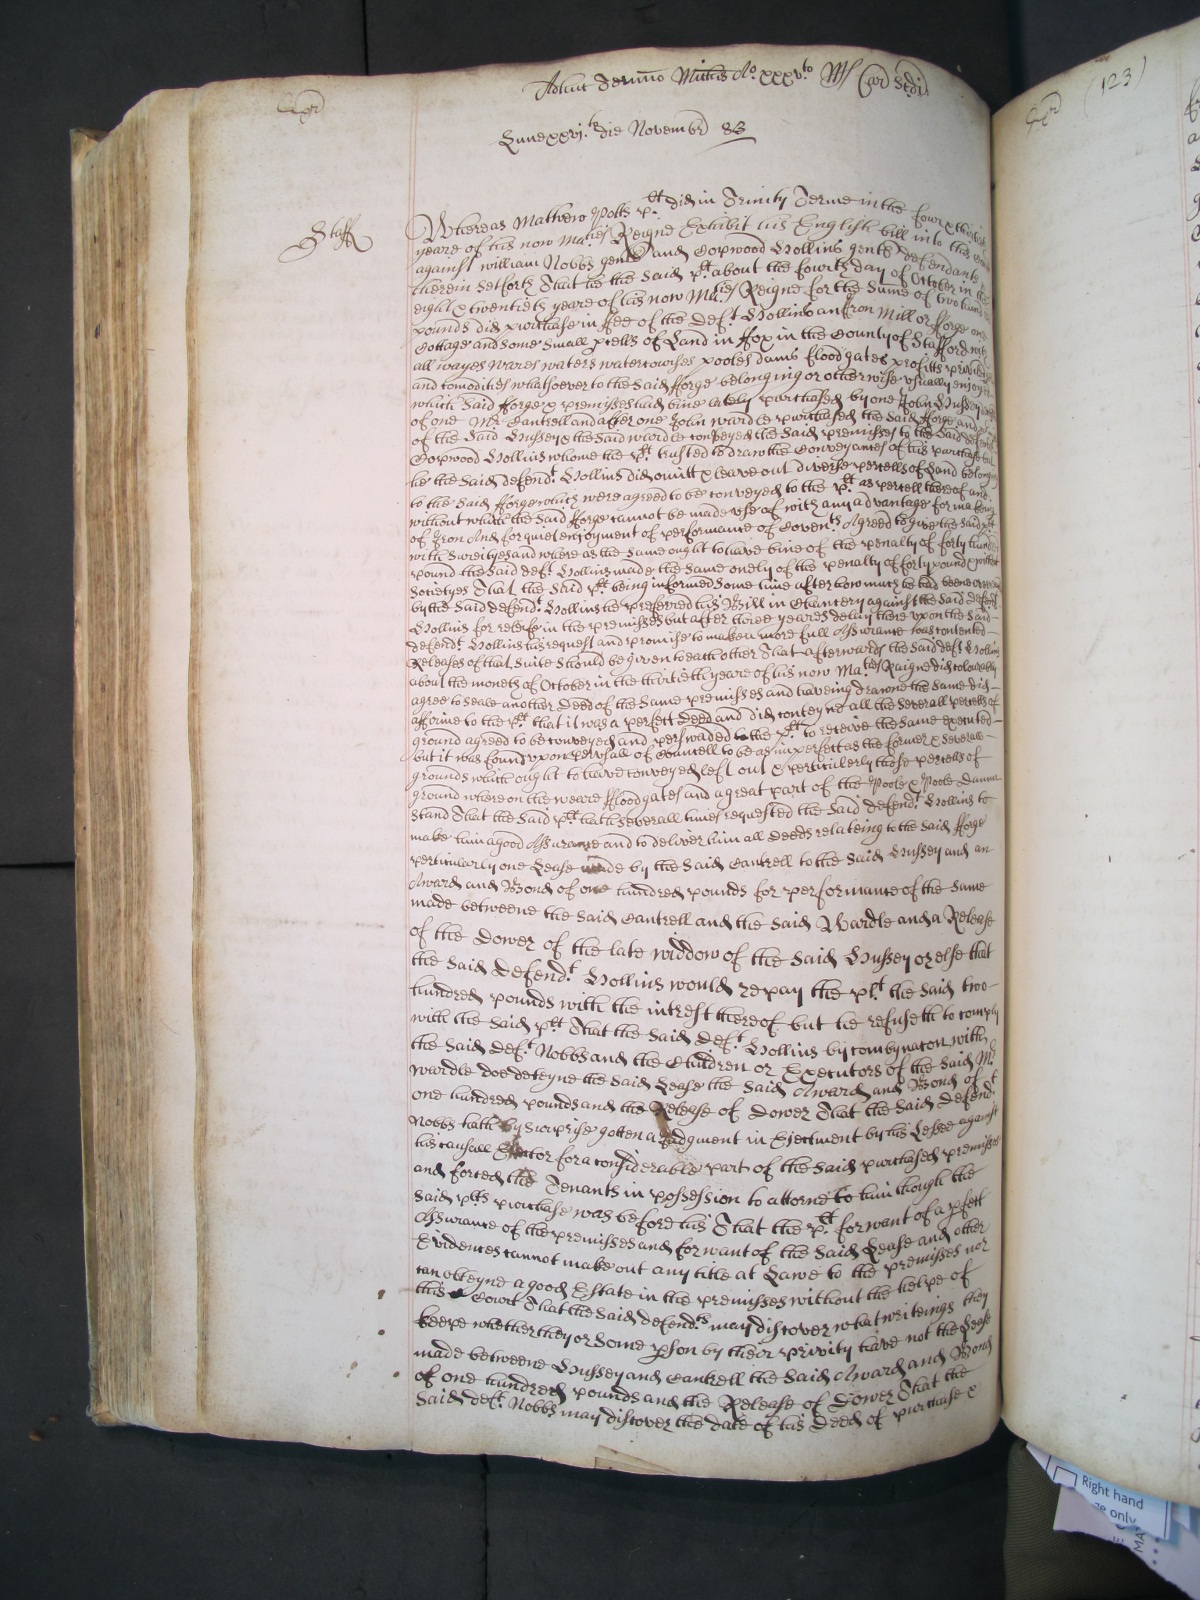 Adhuc Termino Michis Ao. xxxvto Rs Car Scdi
Lune xxvjto die Novembr 83
Staff
Whereas Mathew Potts plt did in Trinity Terme in the fowr & thirtieth
yeare of his now Maties Reigne Exhibit his English bill into this
against William Nobbs gent and Copwood Hollins gent defendants
therein setforth That he the said plt about the fourth day of October in the
eight & twentieth yeare of his now Maties Reigne for the summe of two hundred
pounds did purchase in ffee of the deft Hollins an Iron Mill or fforge one
Cottage and some small pcells of Land in ffox in the County of Stafford with
all wayes wares waters watercourses pooles dams floodgates profitts priviledges
and comodities whatsoever to the said fforge belonging or otherwise usually enjoyed
which said fforge & premisses had bine lately purchased by one John Hussey
of one Mr. Cantrell and after one John Wardle purchased the said fforge and
of the said Hussey & the said Wardle conveyed the said premisses to the said defendt
Copwood Hollins whome the plt trusted to draw the Conveyances of his purchase but
he the said defendt Hollins did omitt & leave out diverse percells of Land belonging
to the said fforge which were agreed to be conveyed to the plt as percell thereof and
without which the said fforge cannot be made use of with any advantage for makeing
of Iron And for quiet enjoyment of performance of Covents Agreed to give the said plt
with sureityes and whereas the same ought to have bine of the penalty of forty hundred
pound the said deft Hollins made the same onely of the penalty of forty pound & without
suretyes That the said plt being informed some time after how much he had beene
by the said defendt Hollins he preferred his Bill in Chancery against the said defendt
Hollins for releife in the premisses but after three yeares delay there upon the said
defendt Hollins his request and promise to make a more full Assurance was contented
Releases of that suite should be given to each other That afterwards the said deft Hollins
about the moneth of October in the thirtieth yeare of his now Maties Raigne did colourably
agree to seale another Deed of the same premisses and haveing drawne the same did
affirme to the plt that it was a perfect Deed and did conteyne all the severall percells of
ground agreed to be conveyed and perswaded the plt to receive the same executed
but it was found upon perusall of Councell to be as imperfect as the former & severall
grounds which ought to have conveyed left out & perticulerly those percells of
ground whereon the weare ffloodgates and a great part of the Poole & Poole Damm
stand That the said plt hath severall times requested the said defendt Hollins to
make him a good Assurance and to deliver him all deeds relateing to the said fforge
perticularly one Lease made by the said Cantrell to the said Hussey and an
Award and Bond of one hundred pounds for performance of the same
made betweene the said Cantrell and the said Wardle and a Release
of the Dower of the late widdow of the said Hussey or else that
the said defendt Hollins would repay the plt the said two
hundred pounds with the intrest thereof but he refuseth to comply
with the said plt That the said deft Hollins by combynacon with
the said deft Nobbs and the Children or Executors of the said Mr
Wardle doe deteyne the said Lease the said Award and Bond of
one hundred pounds and the Release of Dower That the said defendt
Nobbs hath by surprise gotten a Judgment in Ejectment by his Lessee against
his causall Ejector for a considerable part of the said purchased premisses
and forced the Tenants in possession to attorne to him though the
said plts purchase was before his That the plt for want of a pfect
Assurance of the premisses and for want of the said Lease and other
Evidences cannot make out any title at Lawe to the premisses nor
can obteyne a good Estate in the premisses without the helpe of
this Court That the said defendts may discover what writeings they
keepe whether they or some pson by their privity have not the Lease
made betweene Hussey and Cantrell the said Award and Bond
of one hundred pounds and the Release of Dower That the
said deft Nobbs may discover the date of his Deed of purchase &
(123)
Right hand
only